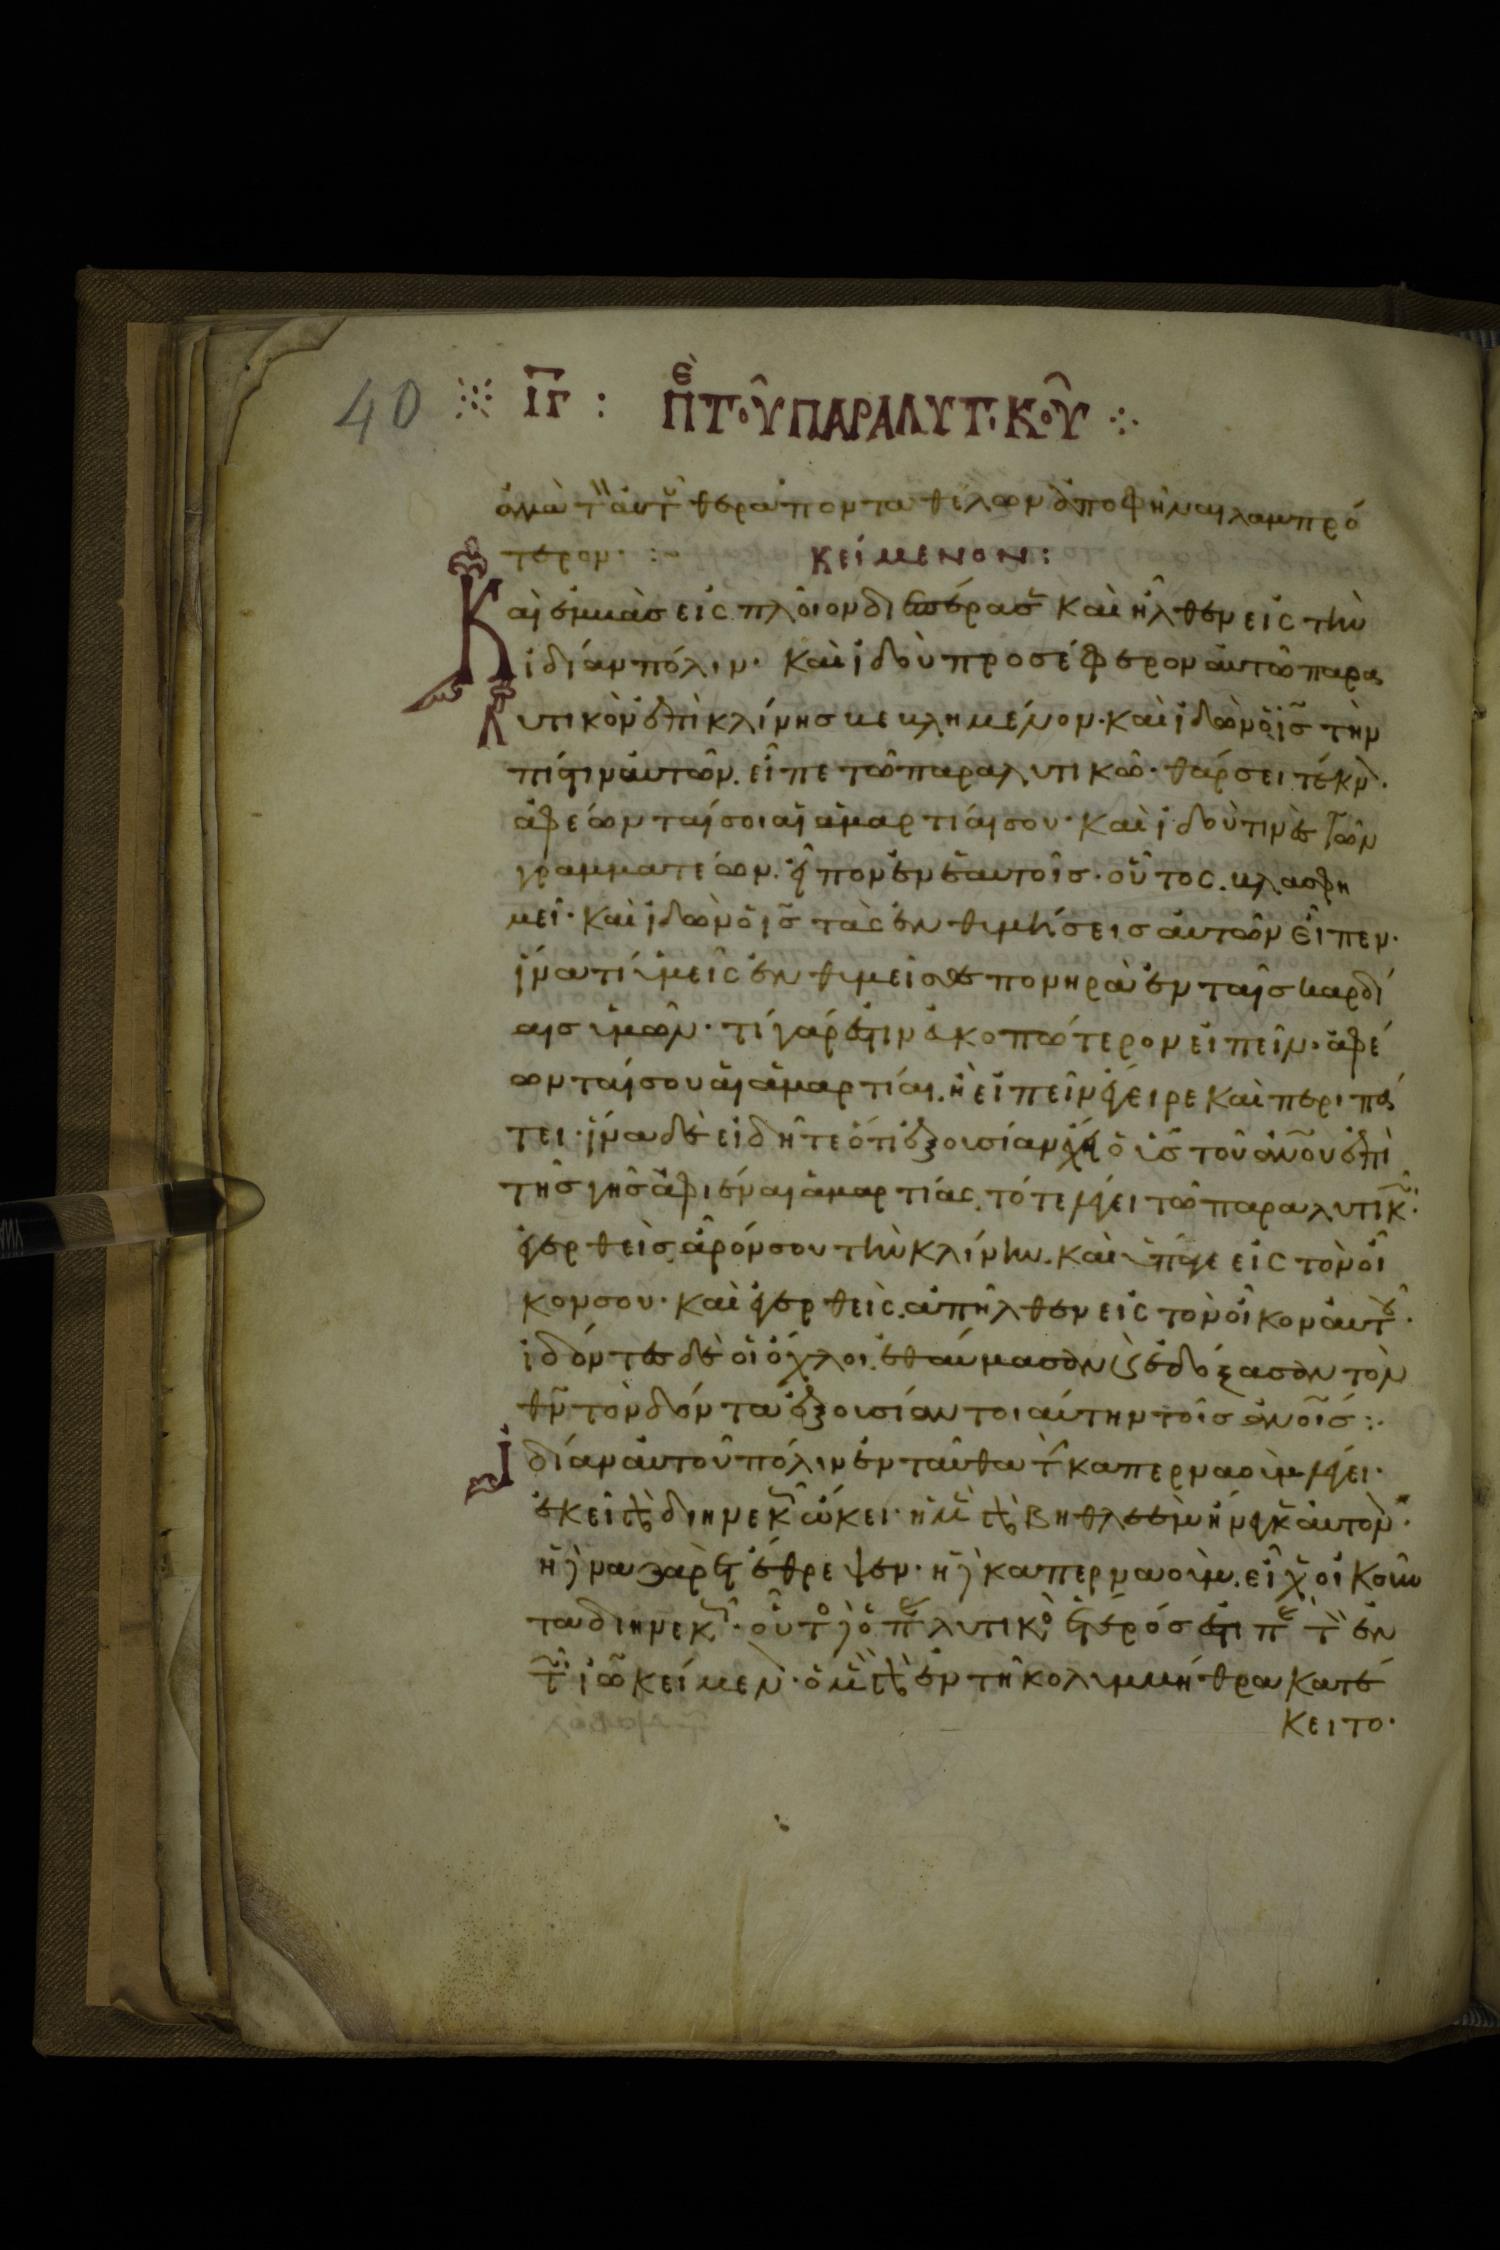 40 ※ ΙΓ : ΠΕ ΤΟῦ ΠΑΡΑΛΥΤΙΚΟῦ ⁘
θεράποντα θέλων ἀποφῆναι λαμπρό
τερον· :~ ΚΕΊΜΕΝΟΝ:
Καὶ ἐμβὰς εἰς πλοῖον διεπέρασε καὶ ἦλθεν εἰς τὴν
ἰδίαν πόλιν· καὶ ἰδοὺ προσέφερον αὐτῶ παρα
Λυτικὸν ἐπὶ κλίνης βεβλημένον· καὶ ἰδὼν ὁ ι̅ς̅ τὴν
πίστιν αὐτῶν. εἶπε τῶ παραλυτικῶ· θάρσει τέκν̀.
ἀφέωνταί σοι αἱ ἁμαρτίαι σου· καὶ ἰδού τινες τῶν
γραμματέων. εἶπον ἐν ἑαυτοῖς· οὗτος. βλασφη
μεῖ· καὶ ἰδὼν ὁ ι̅ς̅ τὰς ἐνθυμήσεις αὐτῶν εἶπεν·
ἱνατί ὑμεῖς ἐνθυμεῖσθε πονηρὰ ἐν ταῖς καρδί
αις ὑμῶν· τί γάρ ἐστιν ἐυκοπώτερον εἰπεῖν· ἀφέ
ωνταί σου αἱ ἁμαρτίαι. ἢ εἰπεῖν ἔγειρε καὶ περιπά
τει· ἵνα δὲ εἰδῆτε ὅτι ἐξουσίαν ἔχει ὁ υ̅ς̅ τοῦ α̅ν̅ο̅υ̅ ἐπὶ
τῆς γῆς ἀφιέναι ἁμαρτίας. τότε λέγει τῶ παραλυτικ̑·
ἐγερθεὶς ἆρόν σου τὴν κλίνην. καὶ ὕπαγε εἰς τὸν οἶ
κον σου· καὶ ἐγερθεὶς. ἀπῆλθεν εἰς τὸν οἶκον αὐτοῦ·
ἰδόντες δὲ οἱ ὄχλοι. ἐθαύμασαν ϗ ἐδόξασαν τὸν
θ̅ν̅ τὸν δόντα ἐξουσίαν τοιαύτην τοῖς α̅ν̅ο̅ι̅ς̅:·
Ἰδίαν αὐτοῦ πόλιν ἐνταῦθα τ̀ καπερναοὺμ λέγει·
ἐκεῖ γὰρ διηνεκῶς ὤκει· ἡ μὲν γὰρ βηθλεὲμ ἤνεγκεν αὐτὸν·
ἡ δὲ ναζαρὲτ ἔθρεψεν· ἡ δὲ καπερναοὺμ. εἶχεν οἰκοῦν
τα διηνεκῶς· οὗτος δὲ ὁ παραλυτικὸς ἕτερός ἐστι παρὰ τὸν ἐν
τῶ ἰω̅ κείμενον· ὁ μὲν γὰρ ἐν τῆ κολυμβήθρα κατέ
κειτο·